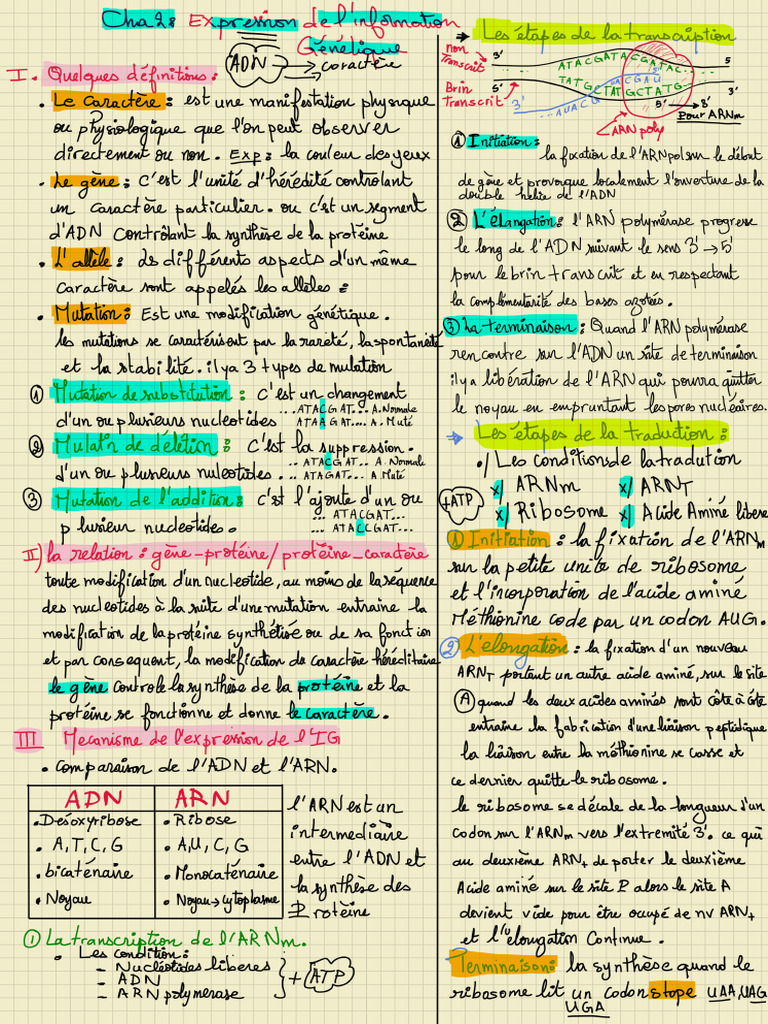 Cha2: Expression de l'information
Génétique
ADN → caractère
I. Quelques définitions:
• Le caractère: est une manifestation physique
ou physiologique que l'on peut observer
directement ou non. Exp: la couleur des yeux
• Le gène: c'est l'unité d'hérédité controlant
un caractère particulier. ou c'est un segment
d'ADN controlant la synthèse de la protéine
• L'allèle: les différents aspects d'un même
caractère sont appelés les alleles:
• Mutation: Est une modification génétique.
les mutations se caractérisent par la rareté, la spontanéité
et la stabilité. il ya 3 types de mutation
① Mutation de substitution: c'est un changement
d'un ou plusieurs nucleotides
...ATACGAT... A.Normale
ATAAGAT... A.Muté
② Mutat°n de délétion: c'est la suppression.
d'un ou plusieurs nuleotides
...ATACGAT.. A.Normale
...ATAGAT... A.Muté
③ Mutation de l'addition: c'est l'ajoute d'un ou
plusieur nucleotides.
... ATACGAT...
... ATACCGAT...
II) la relation: gène-protéine/protéine_caractère
toute modification d'un nucleotide, au moins de la séquence
des nucleotides à la suite d'une mutation entraine la
modification de la protéine synthétisée ou de sa fonction
et par consequent, la modification de caractère héréditaire
le gène controle la synthèse de la protéine et la
protéine se fonctionne et donne le caractère.
III Mecanisme de l'expression de l'IG
• comparaison de l'ADN et l'ARN.
ADN ARN
• Désoxyribose • Ribose
• A,T,C,G • A,U,C,G
• bicaténaire • Monocaténaire
• Noyau • Noyau→cytoplasme
l'ARN est un
intermediaire
entre l'ADN et
la synthèse des
Protéine
① La transcription de l'ARNm.
• Les condition:
- Nucléotides liberes
- ADN
- ARN polymerase
+ ATP
→ Les étapes de la transcription
non Transcrit
3' ATACGATACGATAC.. 5
Brin Transcrit
5' TATGCTATGCTATG 3'
3' ...AUACG
ACGAU 5'
5' → 3'
Pour ARNm
ARN poly
① Initiation:
la fixation de l'ARNpol sur le début
de gène et provoque localement l'ouverture de la
double helice de l'ADN
② L'élongation: l'ARN polymérase progresse
le long de l'ADN suivant le sens 3'→5'
pour le brin transcrit et en respectant
la complémentarité des bases azotées.
③ La terminaison: Quand l'ARN polymérase
rencontre sur l'ADN un site de terminaison
il ya libération de l'ARN qui pourra quitter
le noyau en empruntant les pores nucléaires.
→ Les étapes de la traduction:
•/ Les conditions de la tradution
x/ ARNm x/ ARNT
+ATP
x/ Ribosome x/ Acide Aminé libere
① Initiation: la fixation de l'ARNm
sur la petite unite de ribosome
et l'incorporation de l'acide aminé
Méthionine code par un codon AUG.
② L'elongation: la fixation d'un nouveau
ARNT portant un autre acide aminé, sur le site
Ⓐ quand les deux acides aminés sont côte à côte
entraine la fabrication d'une liaison peptidique
la liaison entre la méthionine se casse et
ce dernier quitte le ribosome.
le ribosome se décale de la longueur d'un
codon sur l'ARNm vers l'extremité 3'. ce qui
au deuxième ARNt de porter le deuxième
Acide aminé sur le site P alors le site A
devient vide pour être occupé de nv ARNt
et l'elongation continue.
Terminaison: la synthèse quand le
ribosome lit un codon stope UAA, UAG
UGA